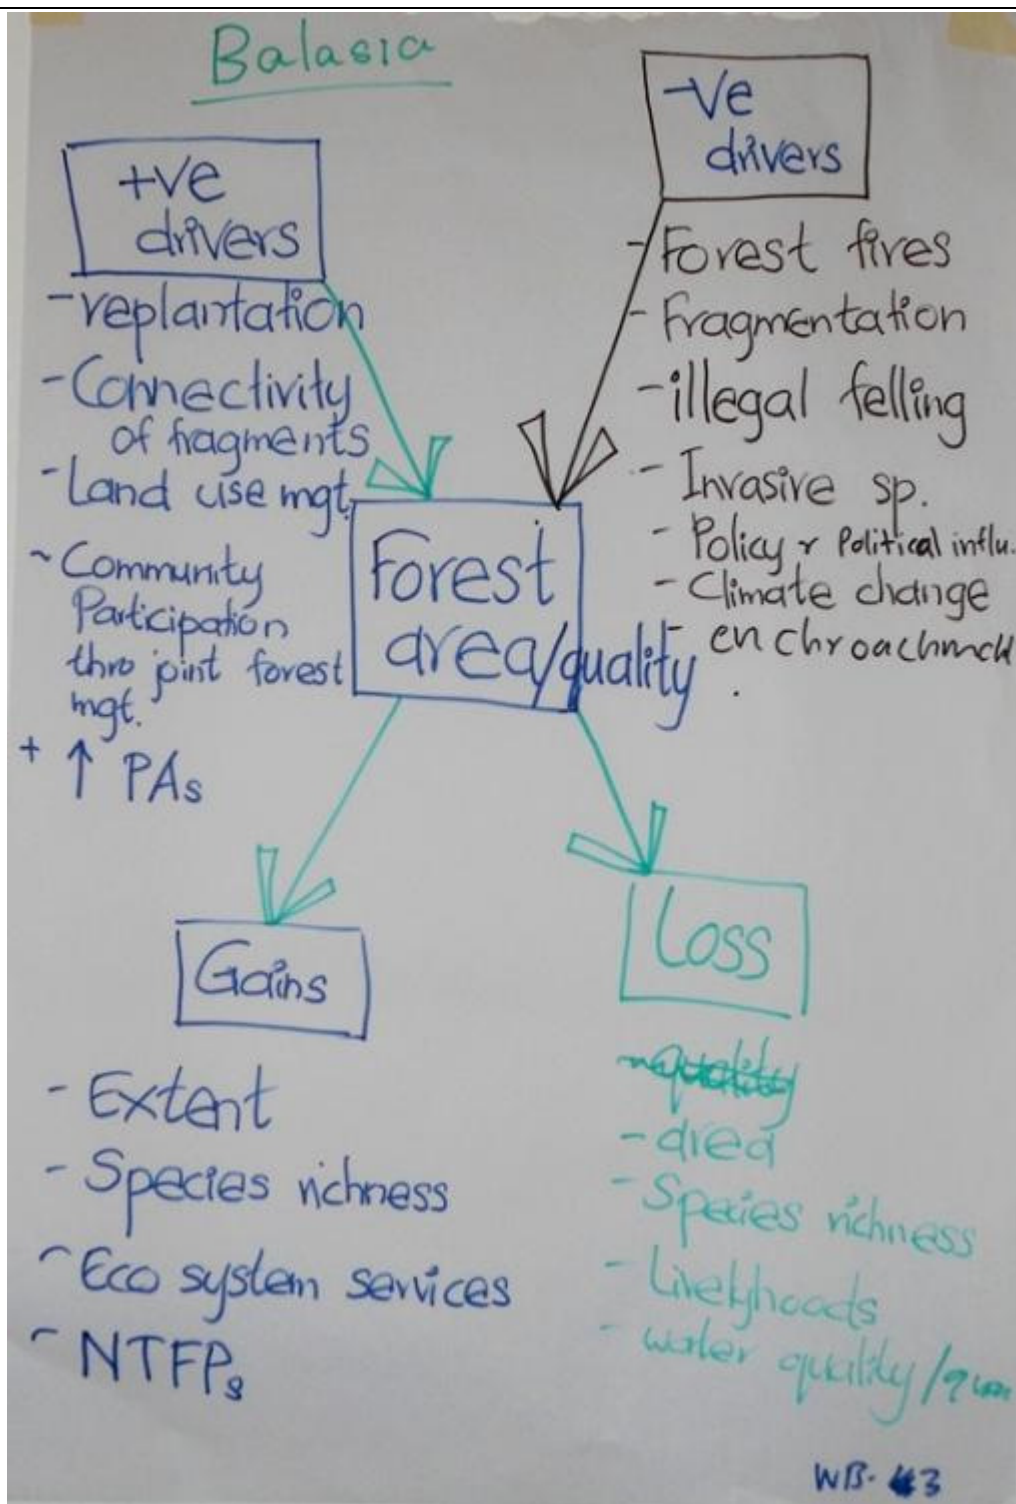 Balasia
+ve
drivers
- replantation
- Connectivity
of fragments
- Land use mgt.
~ Community
Participation
thro joint forest
mgt.
+ ↑ PAs
-ve
drivers
- Forest fires
- Fragmentation
- illegal felling
- Invasive sp.
- Policy & Political influ.
- Climate change
- enchroachment
Forest
area/quality
Gains
- Extent
- Species richness
~ Eco system services
~ NTFPs
Loss
- quality
- area
- Species richness
- Livelyhoods
- water quality/quan
WB. 3